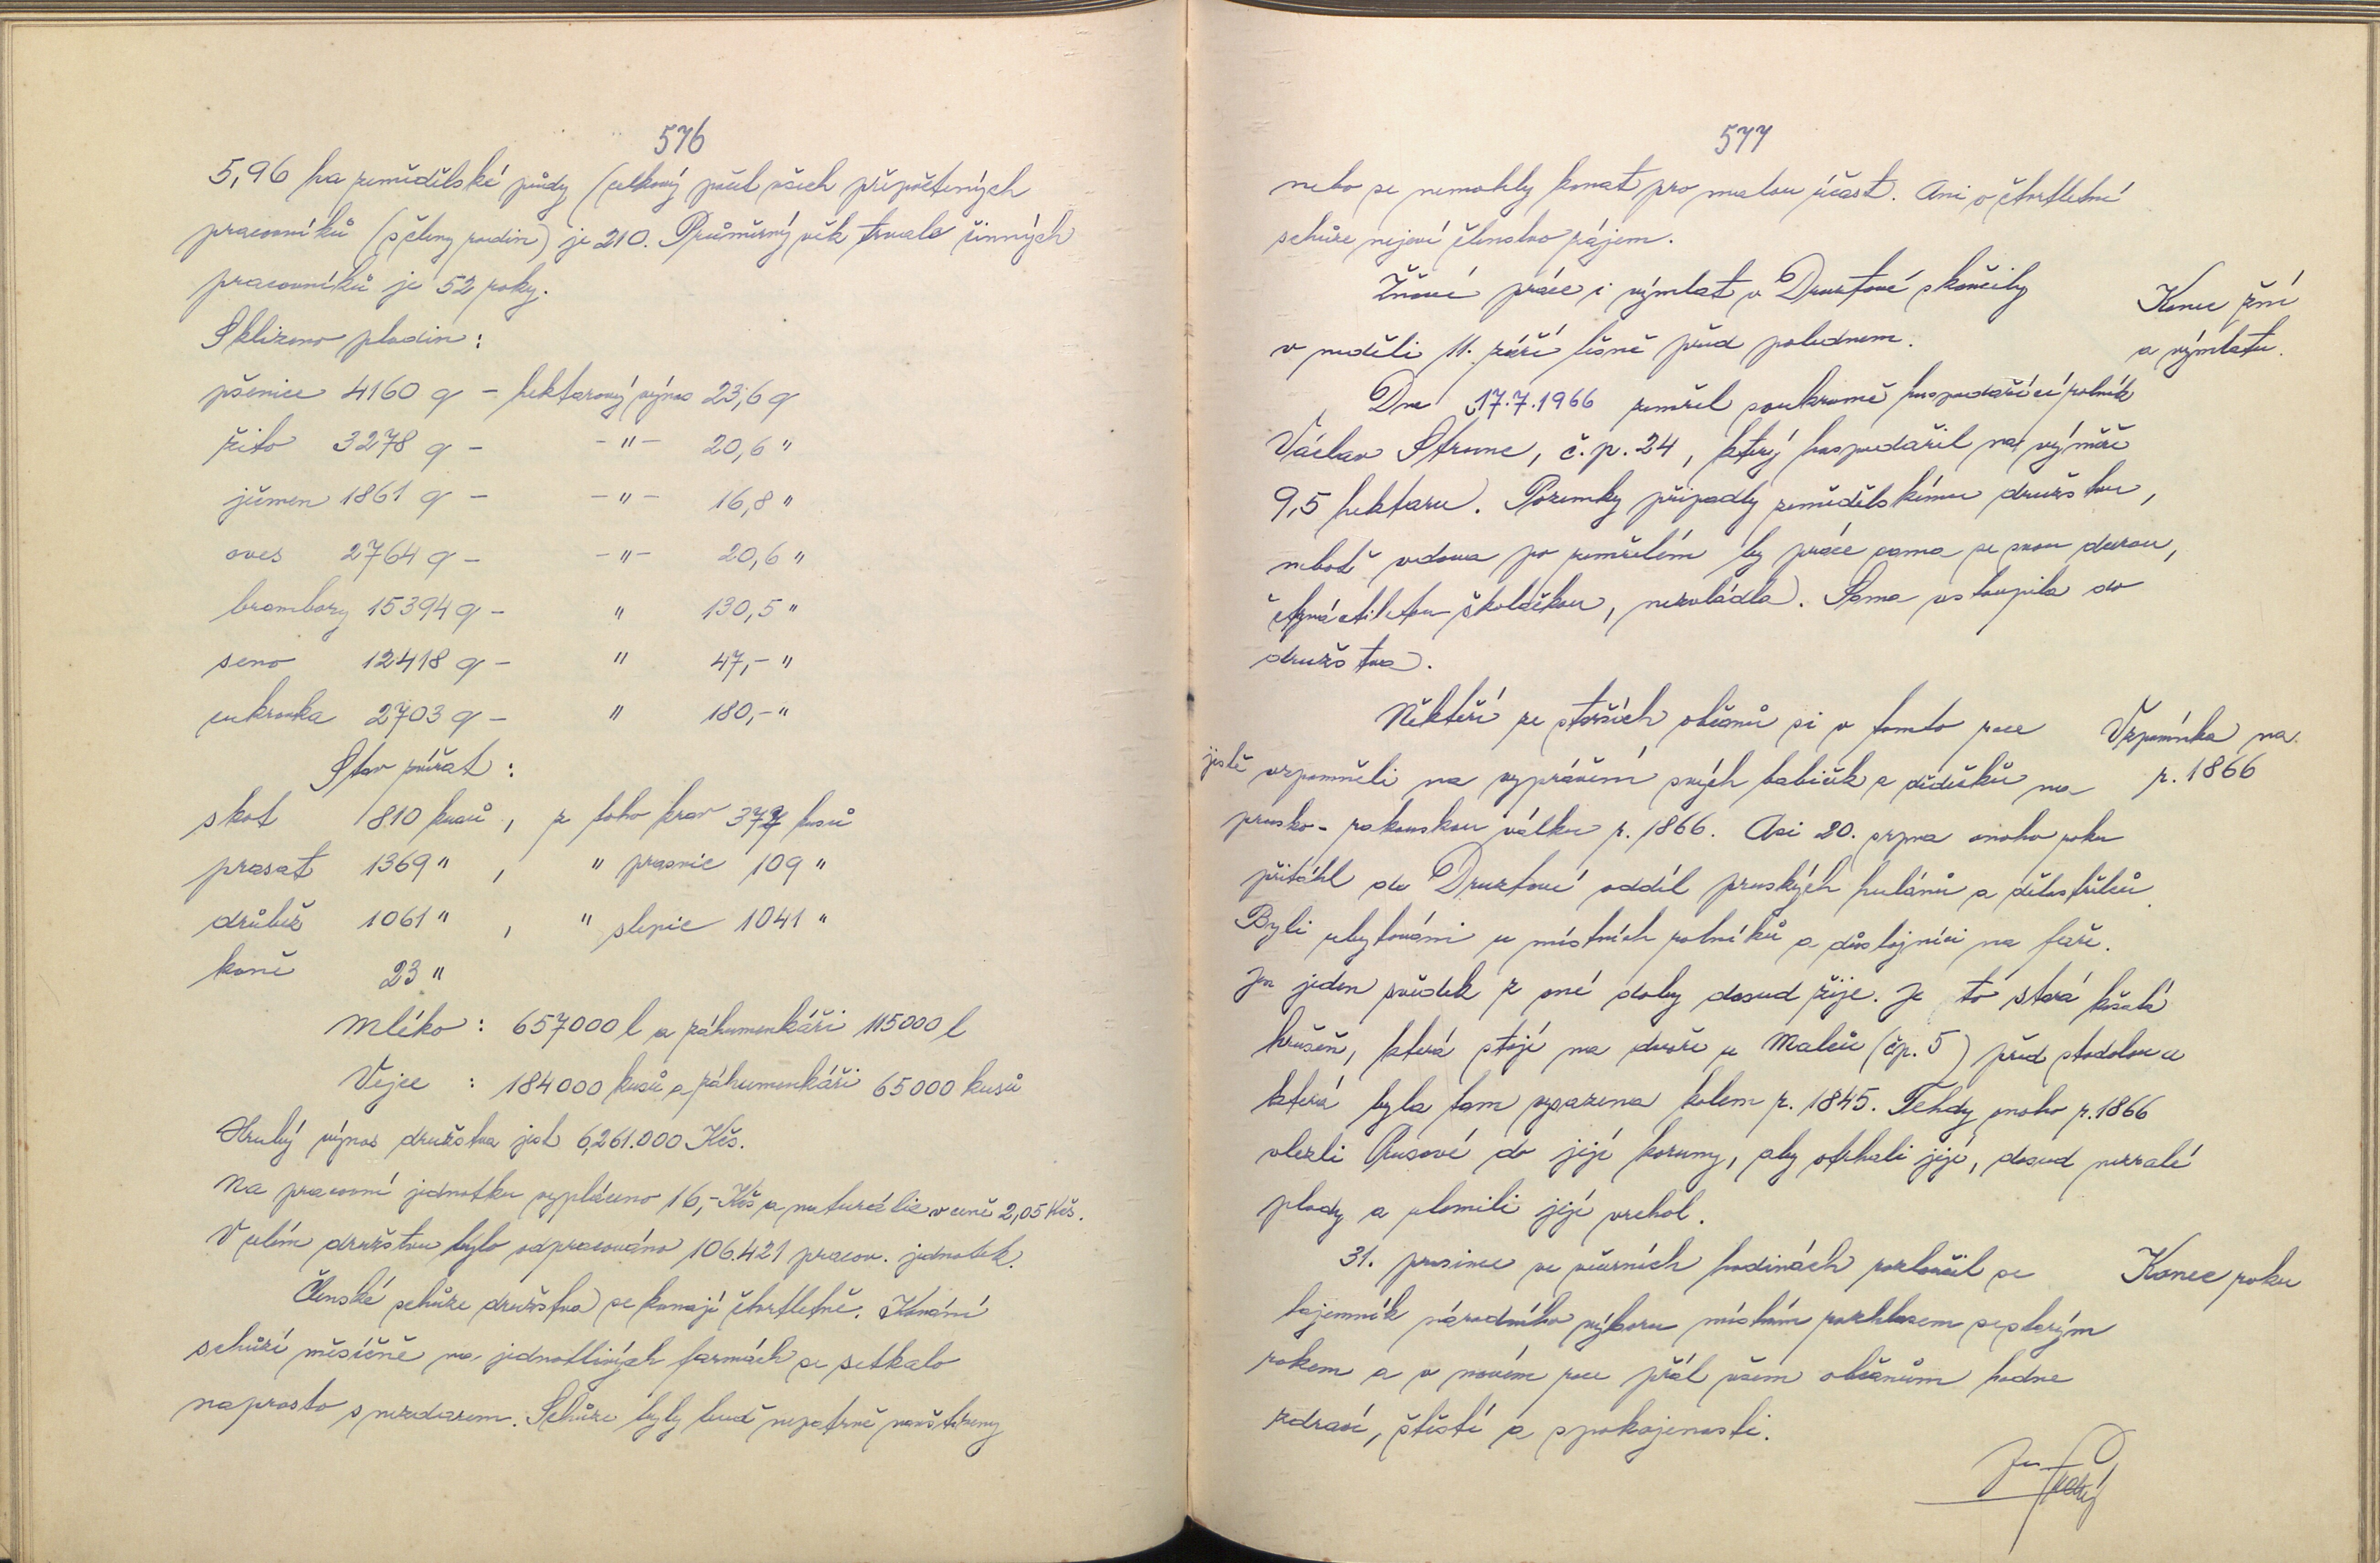 576
5,96 ha zemědělské půdy (celkový počet všech přepočtených
pracovníků (s členy rodin) je 210. Průměrný věk trvale činných
pracovníků je 52 roky.
Sklizeno plodin:
pšenice 4160 q - hektarový výnos 23,6 q
žito 3278 q - -"- 20,6 "
ječmen 1861 q - -"- 16,8 "
oves 2764 q - -"- 20,6 "
brambory 15394 q - " 130,5 "
seno 12418 q - " 47,- "
cukrovka 2703 q - " 180,- "
Stav zvířat:
skot 810 kusů, z toho krav 377 kusů
prasat 1369 ", " prasnic 109 "
drůbež 1061 ", " slepic 1041 "
koně 23 "
Mléko: 657000 l a záhumenkáři 115000 l
Vejce : 184000 kusů a záhumenkáři 65000 kusů
Hrubý výnos družstva jest 6,261.000 Kčs.
Na pracovní jednotku vypláceno 16,- Kčs a naturálie v ceně 2,05 Kčs.
V celém družstvu bylo odpracováno 106.421 pracov. jednotek.
Členské schůze družstva se konají čtvrtletně. Konání
schůzí měsíčně na jednotlivých farmách se setkalo
naprosto s nezdarem. Schůze byly buď nepatrně navštíveny
577
nebo se nemohly konat pro malou účast. Ani o čtvrtletní
schůze nejeví členstvo zájem.
Žňové práce i výmlat v Druztové skončily
v neděli 11. září těsně před polednem.
Konec žní
a výmlatu.
Dne 17.7.1966 zemřel soukromě hospodařící rolník
Václav Strunc, č.p. 24, který hospodařil na výměře
9,5 hektaru. Pozemky připadly zemědělskému družstvu,
neboť vdova po zemřelém by práce sama se svou dcerou,
čtrnáctiletou školačkou, nezvládla. Sama vstoupila do
družstva.
Někteří ze starších občanů si v tomto roce
jistě vzpomněli na vyprávění svých babiček a dědečků na
prusko-rakouskou válku r. 1866. Asi 20. srpna onoho roku
Vzpomínka na
r. 1866
přitáhl do Druztové oddíl pruských hulánů a dělostřelců.
Byli ubytováni u místních rolníků a důstojníci na faře.
Jen jeden svědek z oné doby dosud žije. Je to stará košatá
hrušeň, která stojí na dvoře u Malců (čp. 5) před stodolou a
která byla tam vysazena kolem r. 1845. Tehdy onoho r. 1866
vlezli Prusové do její koruny, aby otrhali její, dosud nezralé
plody a ulomili její vrchol.
31. prosince ve večerních hodinách rozloučil se
Konec roku
tajemník národního výboru místním rozhlasem se starým
rokem a v novém roce přál všem občanům hodně
zdraví, štěstí a spokojenosti.